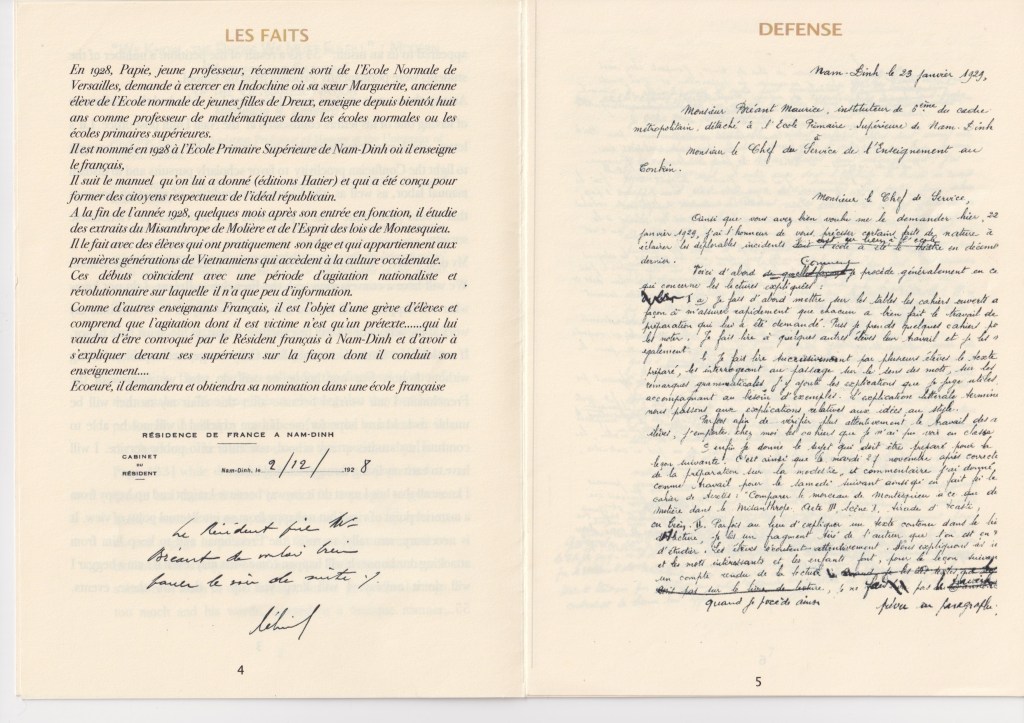 LES FAITS
En 1928, Papie, jeune professeur, récemment sorti de l'Ecole Normale de
Versailles, demande à exercer en Indochine où sa sœur Marguerite, ancienne
élève de l'Ecole normale de jeunes filles de Dreux, enseigne depuis bientôt huit
ans comme professeur de mathématiques dans les écoles normales ou les
écoles primaires supérieures.
Il est nommé en 1928 à l'Ecole Primaire Supérieure de Nam-Dinh où il enseigne
le français,
Il suit le manuel qu'on lui a donné (éditions Hatier) et qui a été conçu pour
former des citoyens respectueux de l'idéal républicain.
A la fin de l'année 1928, quelques mois après son entrée en fonction, il étudie
des extraits du Misanthrope de Molière et de l'Esprit des lois de Montesquieu.
Il le fait avec des élèves qui ont pratiquement son âge et qui appartiennent aux
premières générations de Vietnamiens qui accèdent à la culture occidentale.
Ces débuts coïncident avec une période d'agitation nationaliste et
révolutionnaire sur laquelle il n'a que peu d'information.
Comme d'autres enseignants Français, il est l'objet d'une grève d'élèves et
comprend que l'agitation dont il est victime n'est qu'un prétexte......qui lui
vaudra d'être convoqué par le Résident français à Nam-Dinh et d'avoir à
s'expliquer devant ses supérieurs sur la façon dont il conduit son
enseignement....
Ecoeuré, il demandera et obtiendra sa nomination dans une école française
RÉSIDENCE DE FRANCE A NAM-DINH
CABINET
DU
RÉSIDENT
Nam-Dinh, le 2/12/ 1928
Le Résident prie Mr
Bréant de vouloir bien
passer le voir de suite ./.
4
DEFENSE
Nam-Dinh le 23 janvier 1929,
Monsieur Bréant Maurice, instituteur de 6ème du cadre
métropolitain, détaché à l'Ecole Primaire Supérieure de Nam-Dinh
à
Monsieur le Chef du Service de l'Enseignement au
Tonkin.
Monsieur le Chef de Service,
Ainsi que vous avez bien voulu me le demander hier, 22
janvier 1929, j'ai l'honneur de vous préciser certains faits de nature à
éclairer les déplorables incidents dont l'école a été le théâtre en décem
dernier.
Comment
Voici d'abord je procède généralement en ce
qui concerne les lectures expliquées :
a) Je fais d'abord mettre sur les tables les cahiers ouverts
façon à m'assurer rapidement que chacun a bien fait le travail de
préparation qui lui a été demandé. Puis je prends quelques cahiers po
les noter. Je fais lire à quelques autres élèves leur travail et je les
également.
b. Je fais lire successivement par plusieurs élèves le texte
préparé, les interrogeant au passage sur le sens des mots, sur les
remarques grammaticales. J'y ajoute les explications que je juge utiles,
accompagnant au besoin d'exemples. L'explication littérale terminée
nous passons aux explications relatives aux idées, au style.
Parfois afin de vérifier plus attentivement le travail des
élèves, j'emporte chez moi des cahiers que je n'ai pu voir en classe
enfin je donne le sujet qui doit être préparé pour la
leçon suivante. C'est ainsi que le mardi 27 novembre après correct
de la préparation sur la modestie, et commentaire j'ai donné,
comme travail pour le samedi suivant ainsi qu'en fait foi le
cahier de textes : "Comparer le morceau de Montesquieu à ce que dit
Molière dans le Misanthrope. Acte III, scène I, tirade d'Acaste,
Parfois au lieu d'expliquer un texte contenu dans le livre
lecture, je lis un fragment tiré de l'auteur que l'on est en
d'étudier. Les élèves écoutent attentivement.
et les mots intéressants et, les enfants font, pour la leçon suivante
un compte rendu de la lecture
quand je procède ainsi
prévu au paragraphe
5